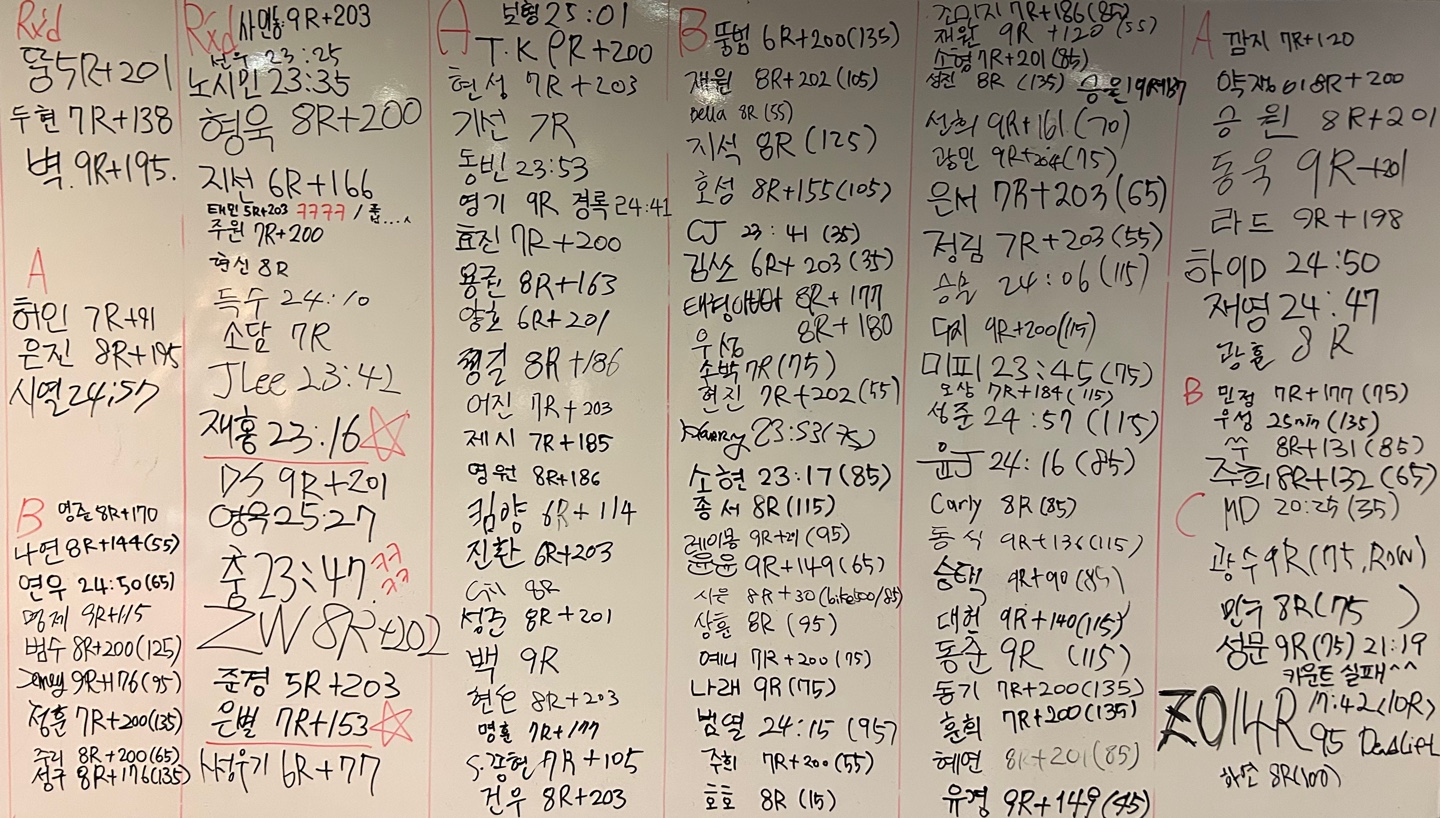 Rx'd
뚱 5R+201
두현 7R+138
벽. 9R+195.
A
허인 7R+91
은진 8R+195
시열 24:57
B 영준 8R+170
나연 8R+144(55)
연우 24:50(65)
명제 9R+115
범수 8R+200(125)
9R+176(95)
정훈 7R+200(135)
주리 8R+200(65)
성구 8R+176(135)
Rx'd 9R+203
선우 23:25
노시민 23:35
형욱 8R+200
지선 6R+166
태민 5R+203 ㅋㅋㅋㅋ /
주원 7R+200
현신 8R
득수 24:10
소담 7R
JLee 23:42
재홍 23:16
DS 9R+201
영욱 25:27
충 23:47 ㅋㅋㅋㅋ
ZW 8R+202
준경 5R+203
은별 7R+153
6R+77
A 보형 25:01
T.K 9R+200
현성 7R+203
기선 7R
동빈 23:53
영기 9R 경록 24:41
효진 7R+200
용준 8R+163
양호 6R+201
8R+186
어진 7R+203
제시 7R+185
영원 8R+186
킴양 6R+114
진환 6R+203
8R
성준 8R+201
백 9R
현은 8R+203
명훈 7R+177
S.광현 7R+105
건우 8R+203
B 뚱범 6R+200(135)
재원 8R+202(105)
bella 8R(55)
지석 8R(125)
호성 8R+155(105)
CJ 23:41(35)
김소 6R+203(35)
태경아빠 8R+177
우성 8R+180
소박 7R(75)
현진 7R+202(55)
Harry 23:53(75)
소현 23:17(85)
종서 8R(115)
레이몽 9R+21(95)
윤윤 9R+149(65)
시은 8R+30(bike500/85)
상훈 8R(95)
예니 7R+200(75)
나래 9R(75)
범열 24:15(95)
주희 7R+200(55)
호호 8R(15)
조민지 7R+186(85)
재원 9R+120(55)
소형 7R+201(85)
성진 8R(135) 승은
선희 9R+161(70)
광민 9R+204(75)
은서 7R+203(65)
정림 7R+203(55)
24:06(115)
대지 9R+200(115)
미피 23:45(75)
오상 7R+184(115)
성준 24:57(115)
윤J 24:16(85)
Carly 8R(85)
동식 9R+136(115)
승택 9R+90(85)
대현 9R+140(115)
동준 9R(115)
동기 7R+200(135)
훈희 7R+200(135)
혜연 8R+201(85)
유경 9R+149(45)
A 깜지 7R+120
8R+200
승원 8R+201
동욱 9R+201
라드 9R+198
하이D 24:50
재영 24:47
광훈 8R
B 민정 7R+177(75)
우성 25min(135)
쑤 8R+131(85)
주희 8R+132(65)
C MD 20:25(35)
광수 9R(75,ROW)
민수 8R(75 )
성문 9R(75) 21:19
카운트 실패^^
ZO 14R 17:42(10R)
95 Deadlift
하소 8R(100)